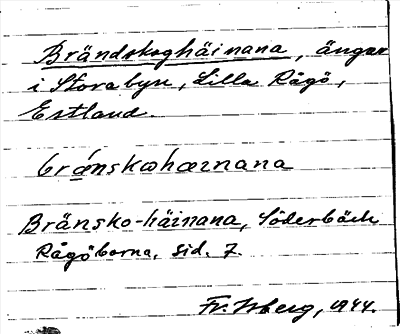 Brändskoghäinana, ängar
i Storabyn, Lilla Rågö,
Estland.
bránskohæınana
Bränsko-häinana, Söderbäck
Rågöborna, sid. 7.
Fr. Isberg, 1944.